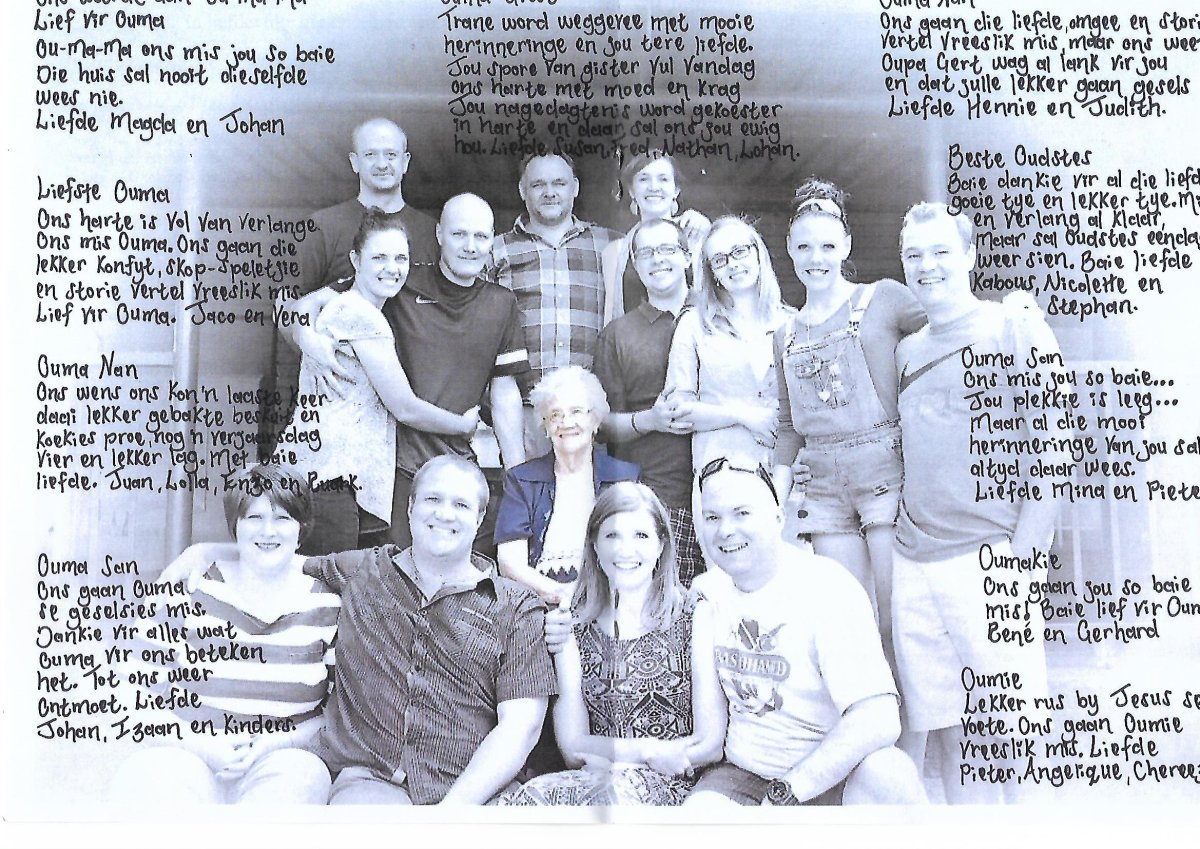 Lief vir Ouma
Ou-Ma-Ma ons mis jou so baie
Die huis sal nooit dieselfde
wees nie.
Liefde Magda en Johan
Liefste Ouma
Ons harte is vol van verlange.
Ons mis Ouma. Ons gaan die
lekker konfyt, skop-speletjie
en storie vertel vreeslik mis.
Lief vir Ouma. Jaco en Vera
Ouma Nan
Ons wens ons kon 'n laaste keer
daai lekker gebakte beskuit en
koekies proe, nog 'n verjaarsdag
vier en lekker lag. Met baie
liefde. Juan, Lolla, Enzo en Ruark.
Ouma San
Ons gaan Ouma
se geselsies mis.
Dankie vir alles wat
Ouma vir ons beteken
het. Tot ons weer
ontmoet. Liefde
Johan, Izaan en kinders.
Trane word weggevee met mooie
herinneringe en jou tere liefde.
Jou spore van gister vul vandag
ons harte met moed en krag
Jou nagedagtenis word gekoester
in harte en daar sal ons jou ewig
hou. Liefde Susan, Fred, Nathan, Lohan.
Ons gaan die liefde, omgee en stori
vertel vreeslik mis, maar ons weet
Oupa Gert wag al lank vir jou
en dat julle lekker gaan gesels
Liefde Hennie en Judith.
Beste Oudstes
Baie dankie vir al die liefd
goeie tye en lekker tye. Mi
en verlang al klaar,
Maar sal Oudstes eenda
weer sien. Baie liefde
Kabous, Nicolette en
Stephan.
Ouma San
Ons mis jou so baie...
Jou plekkie is leeg...
Maar al die mooi
herinneringe van jou sal
altyd daar wees.
Liefde Mina en Pieter
Oumakie
Ons gaan jou so baie
mis! Baie lief vir Oum
Bené en Gerhard
Oumie
Lekker rus by Jesus se
voete. Ons gaan Oumie
vreeslik mis. Liefde
Pieter, Angerique,